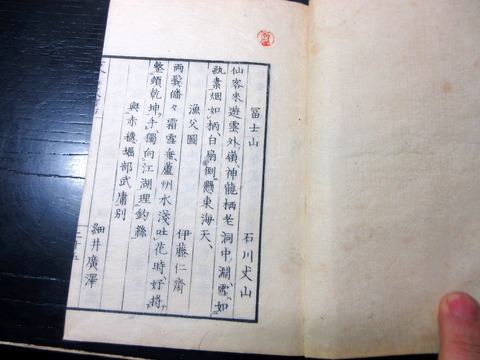 冨士山 石川丈山
仙客來遊雲外嶺神龍栖老洞中淵雪如
紈素烟如柄白扇倒懸東海天
漁父圖 伊藤仁齋
兩鬓皤々霜雪垂蘆州水淺吐花時好將
整頓乾坤手獨向江湖理釣絲
與赤穗堀部武庸別
細井廣澤